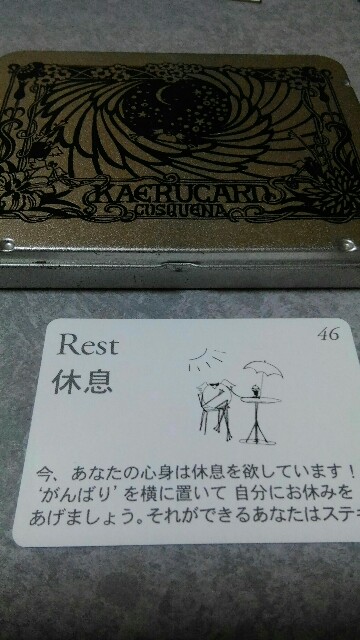 KAERUCARD
CUSQUENA
Rest
46
休息
今、あなたの心身は休息を欲しています!
'がんばり'を横に置いて 自分にお休みを
あげましょう。それができるあなたはステキ